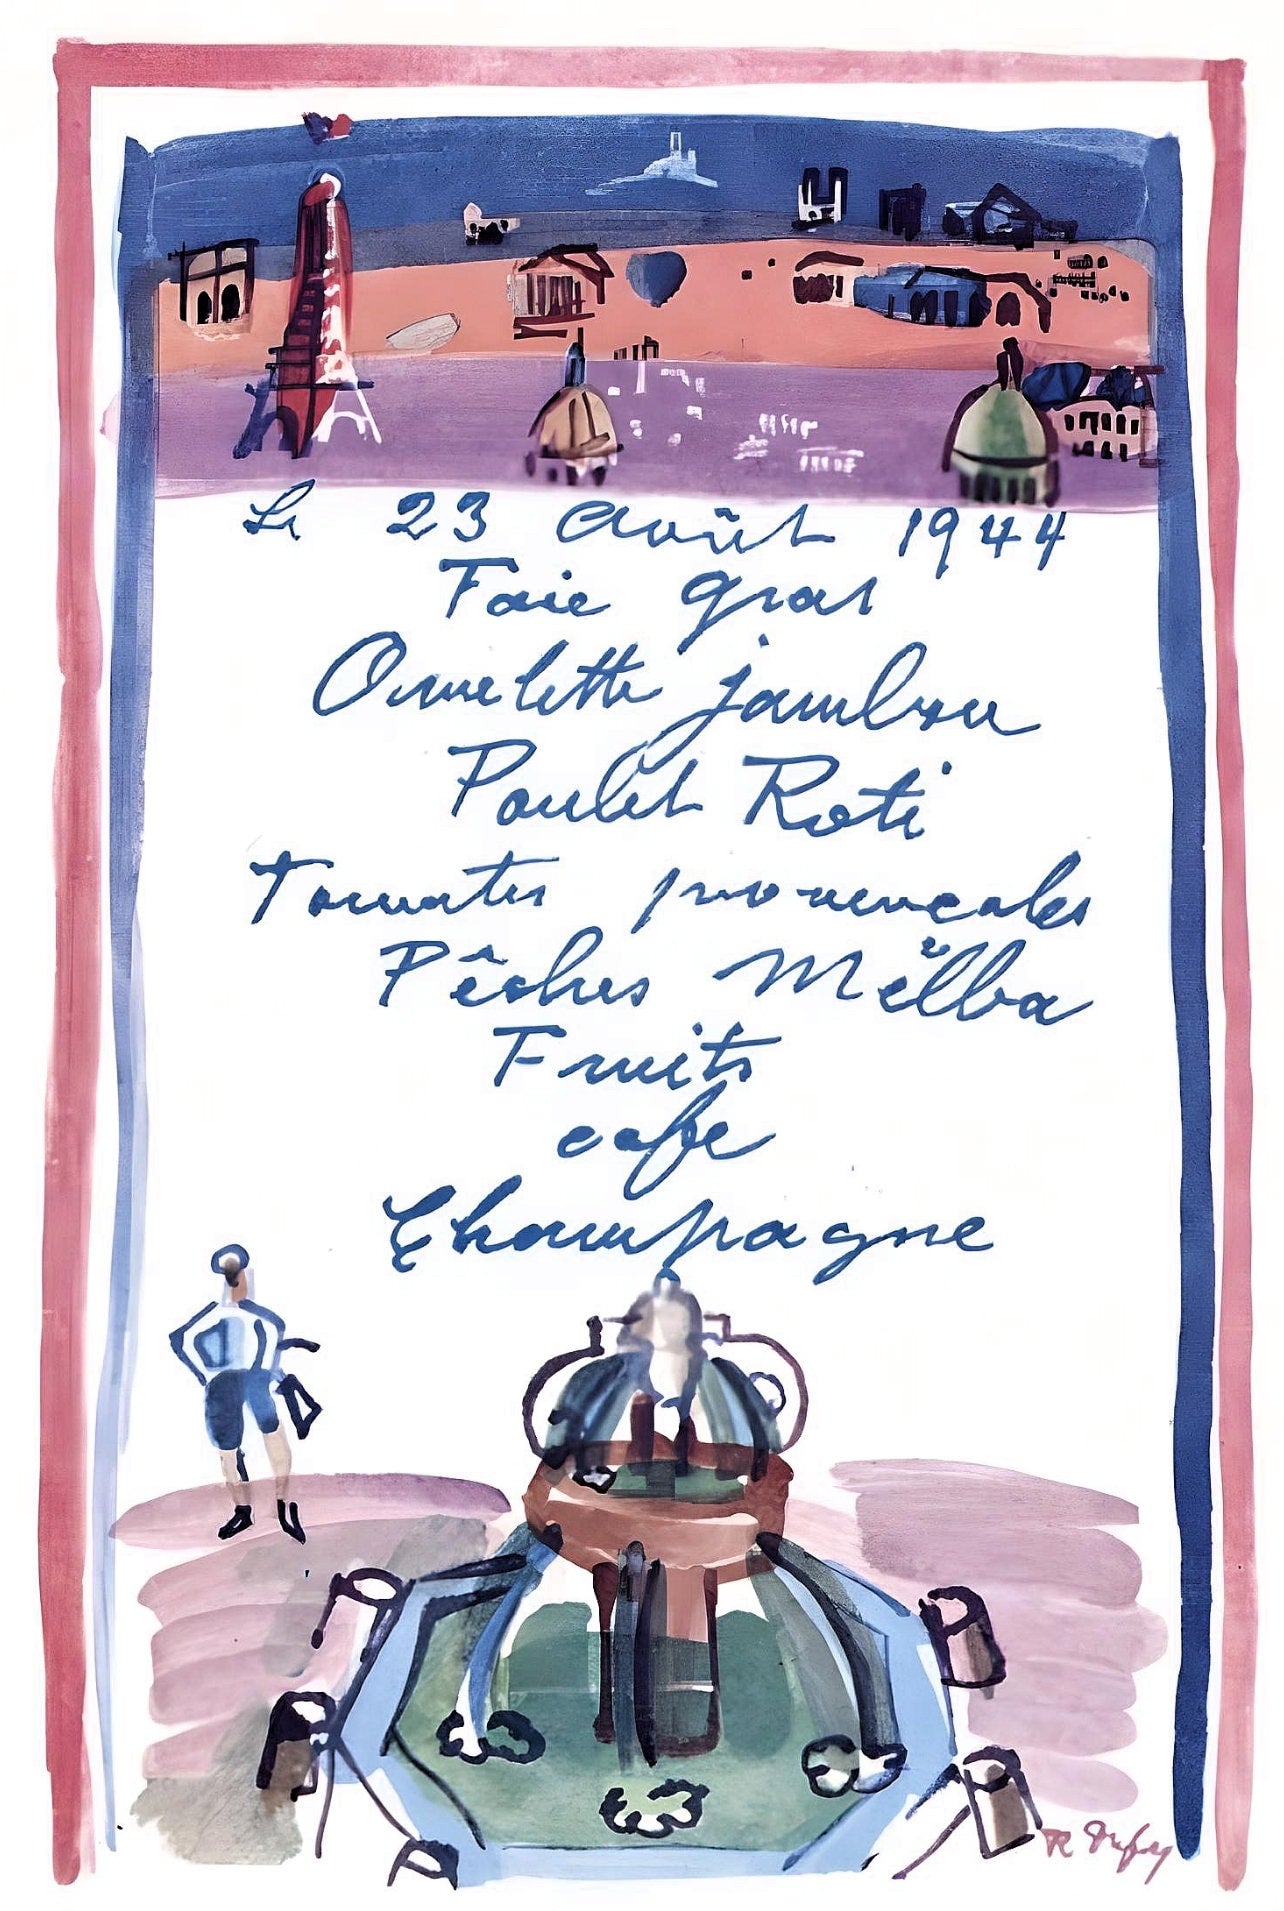 Le 23 Août 1944
Foie gras
Omelette jambon
Poulet Roti
Tomates provencales
Pêches Melba
Fruits
cafe
Champagne
R Dufy